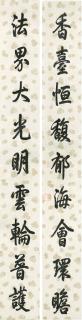 香臺恒馥郁海會環瞻
法界大光明雲輪普護